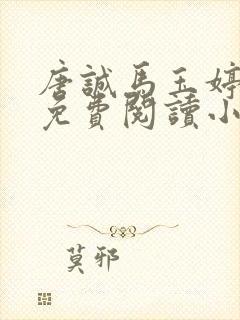 唐誠馬玉婷
免費閱讀小
莫邪